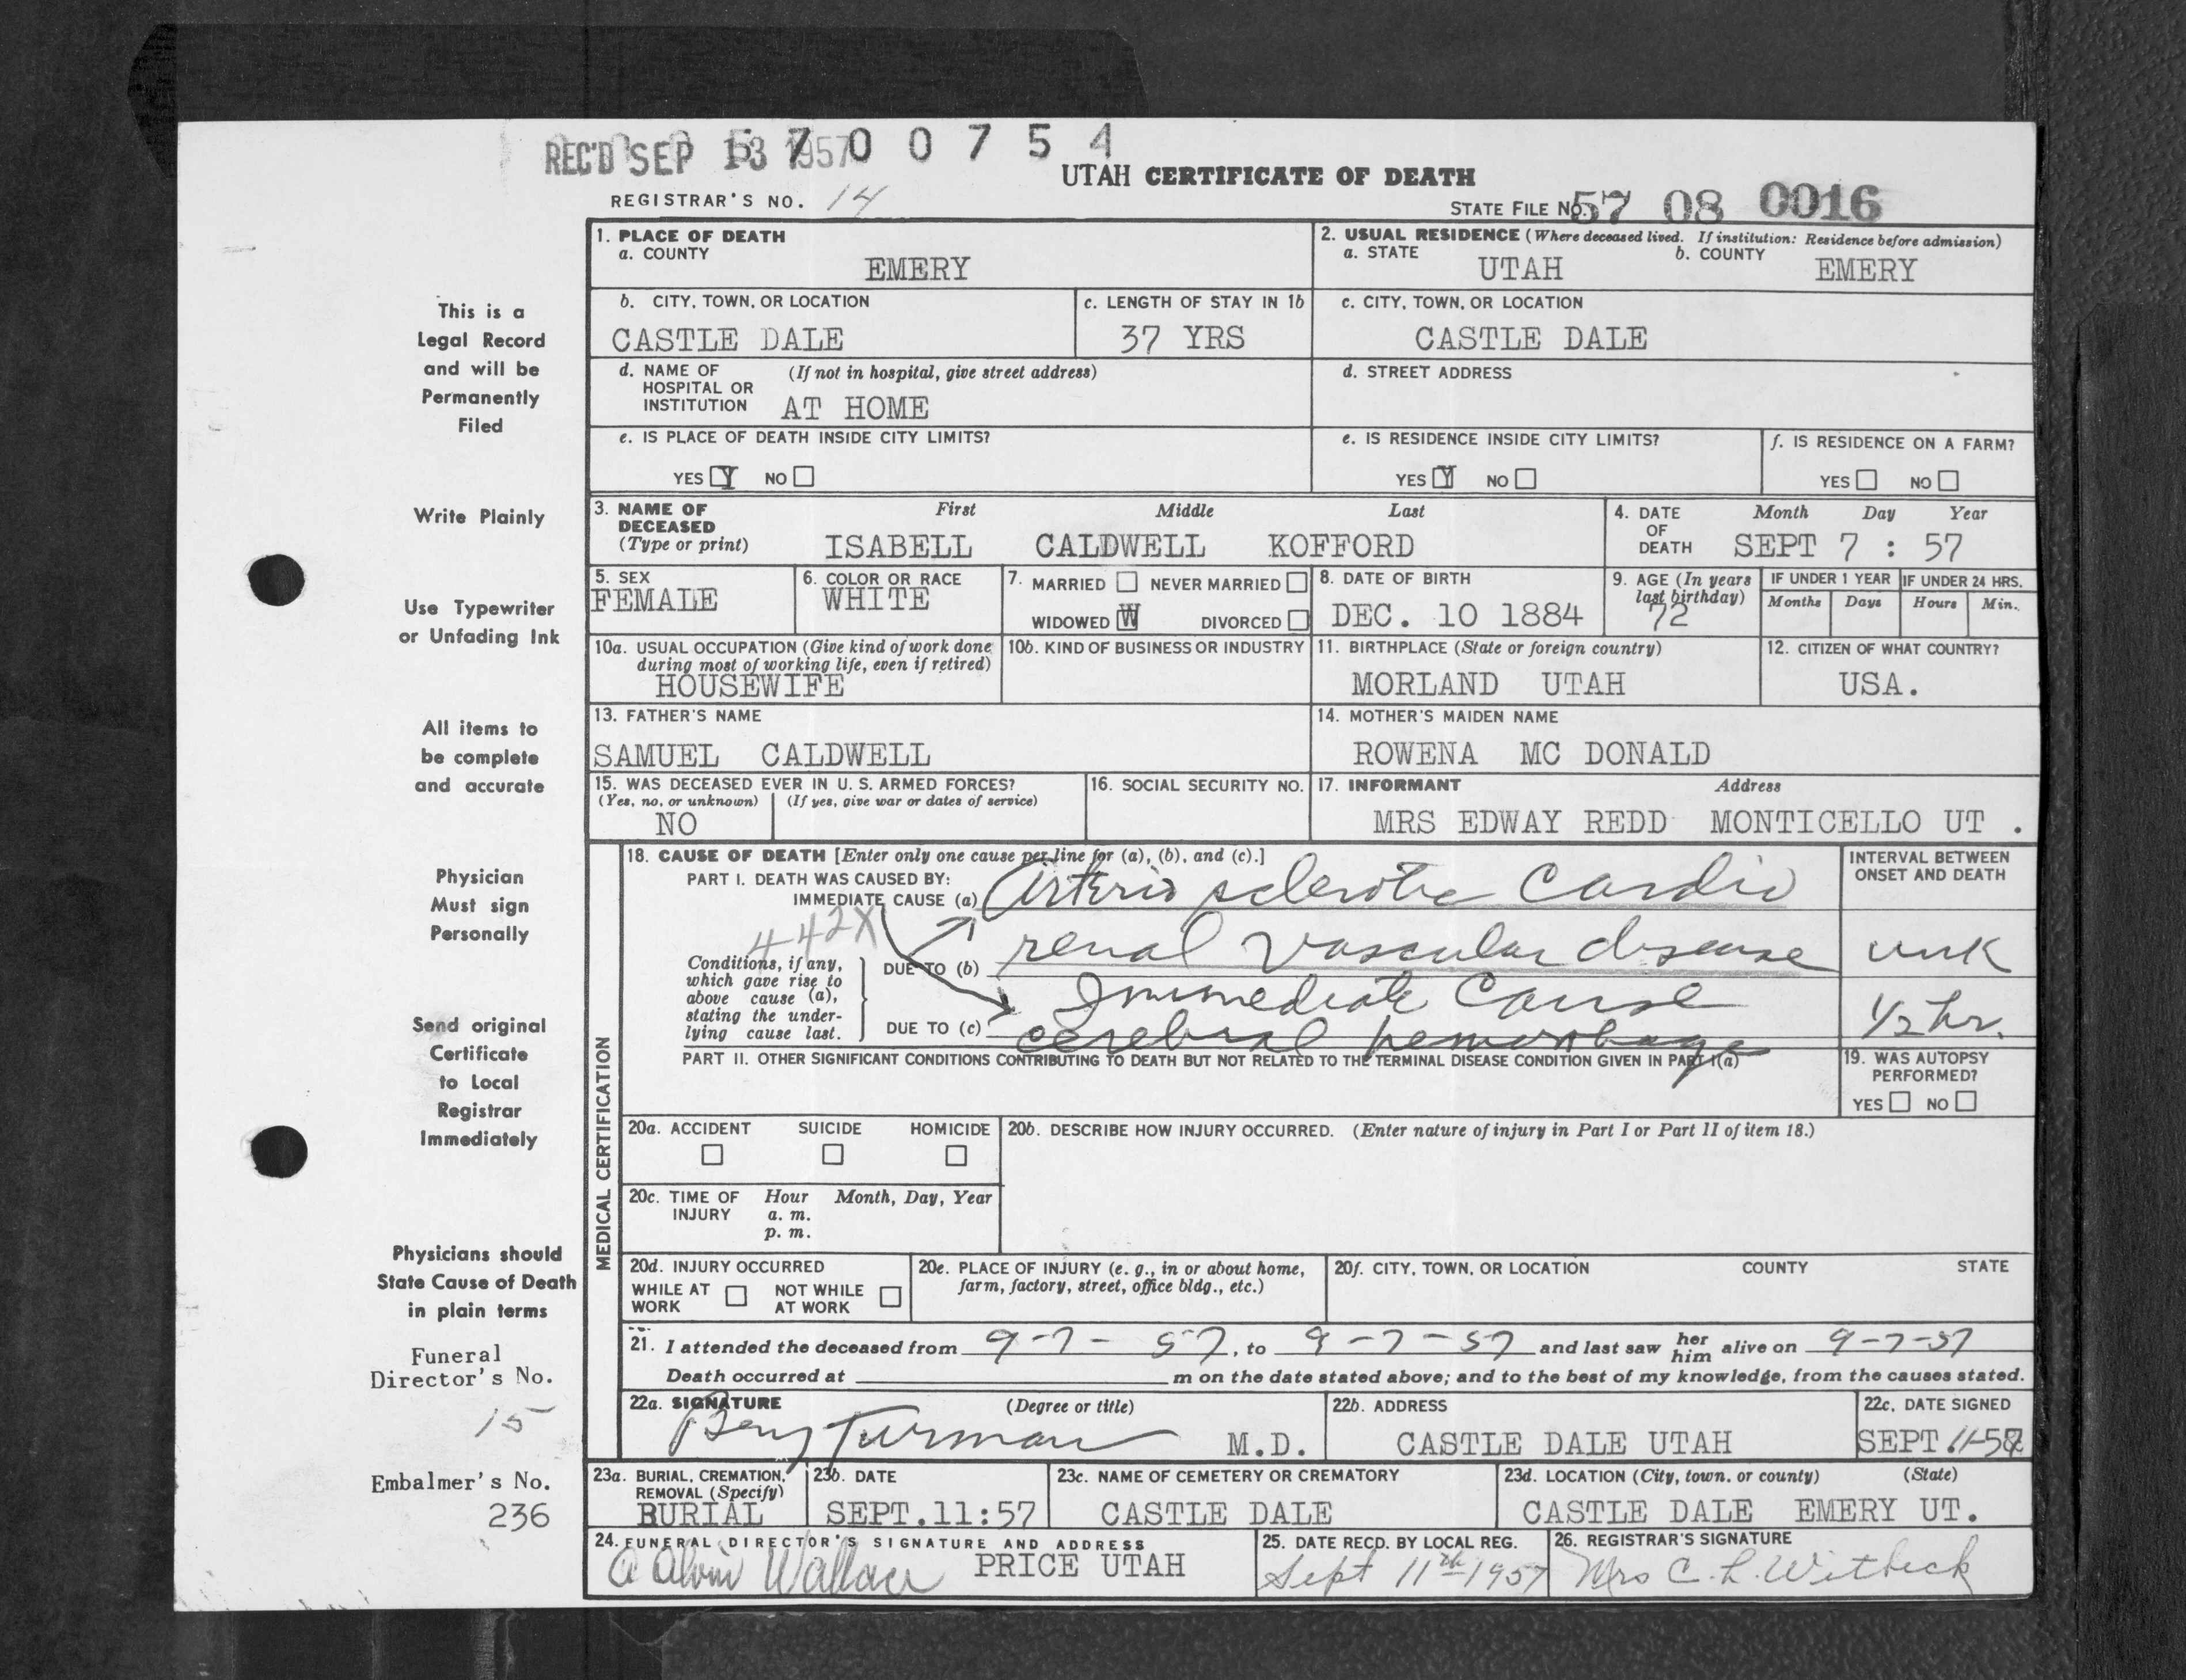 REC'D SEP 13 1957
5 7 0 0 7 5 4
UTAH CERTIFICATE OF DEATH
REGISTRAR'S NO. 14
STATE FILE NO. 57 08 0016
This is a
Legal Record
and will be
Permanently
Filed
Write Plainly
Use Typewriter
or Unfading Ink
All items to
be complete
and accurate
Physician
Must sign
Personally
Send original
Certificate
to Local
Registrar
Immediately
Physicians should
State Cause of Death
in plain terms
Funeral
Director's No.
15
Embalmer's No.
236
1. PLACE OF DEATH
a. COUNTY
EMERY
2. USUAL RESIDENCE (Where deceased lived. If institution: Residence before admission)
a. STATE UTAH b. COUNTY EMERY
b. CITY, TOWN, OR LOCATION
CASTLE DALE
c. LENGTH OF STAY IN 1b
37 YRS
c. CITY, TOWN, OR LOCATION
CASTLE DALE
d. NAME OF (If not in hospital, give street address)
HOSPITAL OR
INSTITUTION AT HOME
d. STREET ADDRESS
e. IS PLACE OF DEATH INSIDE CITY LIMITS?
YES Y NO
e. IS RESIDENCE INSIDE CITY LIMITS?
YES Y NO
f. IS RESIDENCE ON A FARM?
YES NO
3. NAME OF First Middle Last
DECEASED
(Type or print) ISABELL CALDWELL KOFFORD
4. DATE Month Day Year
OF
DEATH SEPT 7 : 57
5. SEX
FEMALE
6. COLOR OR RACE
WHITE
7. MARRIED NEVER MARRIED
WIDOWED W DIVORCED
8. DATE OF BIRTH
DEC. 10 1884
9. AGE (In years
last birthday)
72
IF UNDER 1 YEAR
Months Days
IF UNDER 24 HRS.
Hours Min.
10a. USUAL OCCUPATION (Give kind of work done
during most of working life, even if retired)
HOUSEWIFE
10b. KIND OF BUSINESS OR INDUSTRY
11. BIRTHPLACE (State or foreign country)
MORLAND UTAH
12. CITIZEN OF WHAT COUNTRY?
USA.
13. FATHER'S NAME
SAMUEL CALDWELL
14. MOTHER'S MAIDEN NAME
ROWENA MC DONALD
15. WAS DECEASED EVER IN U. S. ARMED FORCES?
(Yes, no, or unknown) (If yes, give war or dates of service)
NO
16. SOCIAL SECURITY NO.
17. INFORMANT Address
MRS EDWAY REDD MONTICELLO UT .
MEDICAL CERTIFICATION
18. CAUSE OF DEATH [Enter only one cause per line for (a), (b), and (c).]
PART I. DEATH WAS CAUSED BY:
IMMEDIATE CAUSE (a) Arterio sclerotic Cardio
442X
Conditions, if any,
which gave rise to
above cause (a),
stating the under-
lying cause last.
DUE TO (b) renal vascular disease
Immediate Cause
DUE TO (c) cerebral hemorrhage
INTERVAL BETWEEN
ONSET AND DEATH
unk
1/2 hr.
PART II. OTHER SIGNIFICANT CONDITIONS CONTRIBUTING TO DEATH BUT NOT RELATED TO THE TERMINAL DISEASE CONDITION GIVEN IN PART I(a)
19. WAS AUTOPSY
PERFORMED?
YES NO
20a. ACCIDENT SUICIDE HOMICIDE
20b. DESCRIBE HOW INJURY OCCURRED. (Enter nature of injury in Part I or Part II of item 18.)
20c. TIME OF Hour Month, Day, Year
INJURY a. m.
p. m.
20d. INJURY OCCURRED
WHILE AT NOT WHILE
WORK AT WORK
20e. PLACE OF INJURY (e. g., in or about home,
farm, factory, street, office bldg., etc.)
20f. CITY, TOWN, OR LOCATION COUNTY STATE
21. I attended the deceased from 9-7-57, to 9-7-57 and last saw her him alive on 9-7-57
Death occurred at m on the date stated above; and to the best of my knowledge, from the causes stated.
22a. SIGNATURE (Degree or title)
Turman M.D.
22b. ADDRESS
CASTLE DALE UTAH
22c. DATE SIGNED
SEPT 11-57
23a. BURIAL, CREMATION,
REMOVAL (Specify)
BURIAL
23b. DATE
SEPT.11:57
23c. NAME OF CEMETERY OR CREMATORY
CASTLE DALE
23d. LOCATION (City, town, or county) (State)
CASTLE DALE EMERY UT.
24. FUNERAL DIRECTOR'S SIGNATURE AND ADDRESS
A Alvin Wallace PRICE UTAH
25. DATE RECD. BY LOCAL REG.
Sept 11th 1957
26. REGISTRAR'S SIGNATURE
Mrs C. L. Witbeck